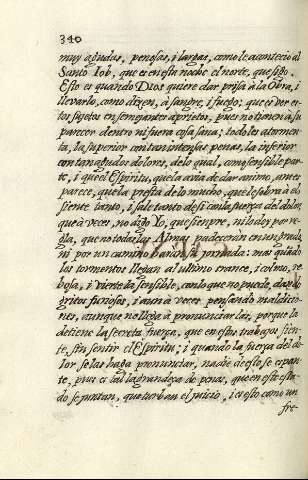 340
muy agudas, penosas, i largas, como le acontecio al
Santo Iob, que es en esta noche el norte, que sigo.
Esto es quando Dios quiere dar prisa à la Obra, i
llevarlo, como dizen, à sangre, i fuego; que es ver es-
tos sujetos en semejantes aprietos, pues no tienen à su
parecer dentro ni fuera cosa sana; todo les atormen-
ta, la superior con tan intensas penas, la inferior
con tan agudos dolores, de lo qual, como sensible par-
te, i que el Espiritu, que la avia de dar animo, antes
parece, que la presta de lo mucho, que le sobra à el
siente tanto, i sale tanto de si con la fuerza del dolor,
que à veces, no digo Yo, que siempre, ni lo doy por re-
gla, que no todas las Almas padecerán en un grado,
ni por un camino harán su jornada: mas quãdo
los tormentos llegan al ultimo trance, i colmo, re-
bosa, i vierte la sensible, con lo que no puede, dando
gritos furiosos, i aun à veces pensando maldicio-
nes, aunque no llega à pronunciarlas, porque la
detiene la secreta fuerza, que en estos trabajos sien-
te, sin sentir el Espiritu; i quando la fuerza del do-
lor se las haga pronunciar, nadie de esto se espan-
te, pues es tal la grandeza de penas, que en este esta-
do se juntan, que turban el juicio, i es esto como un
fre-